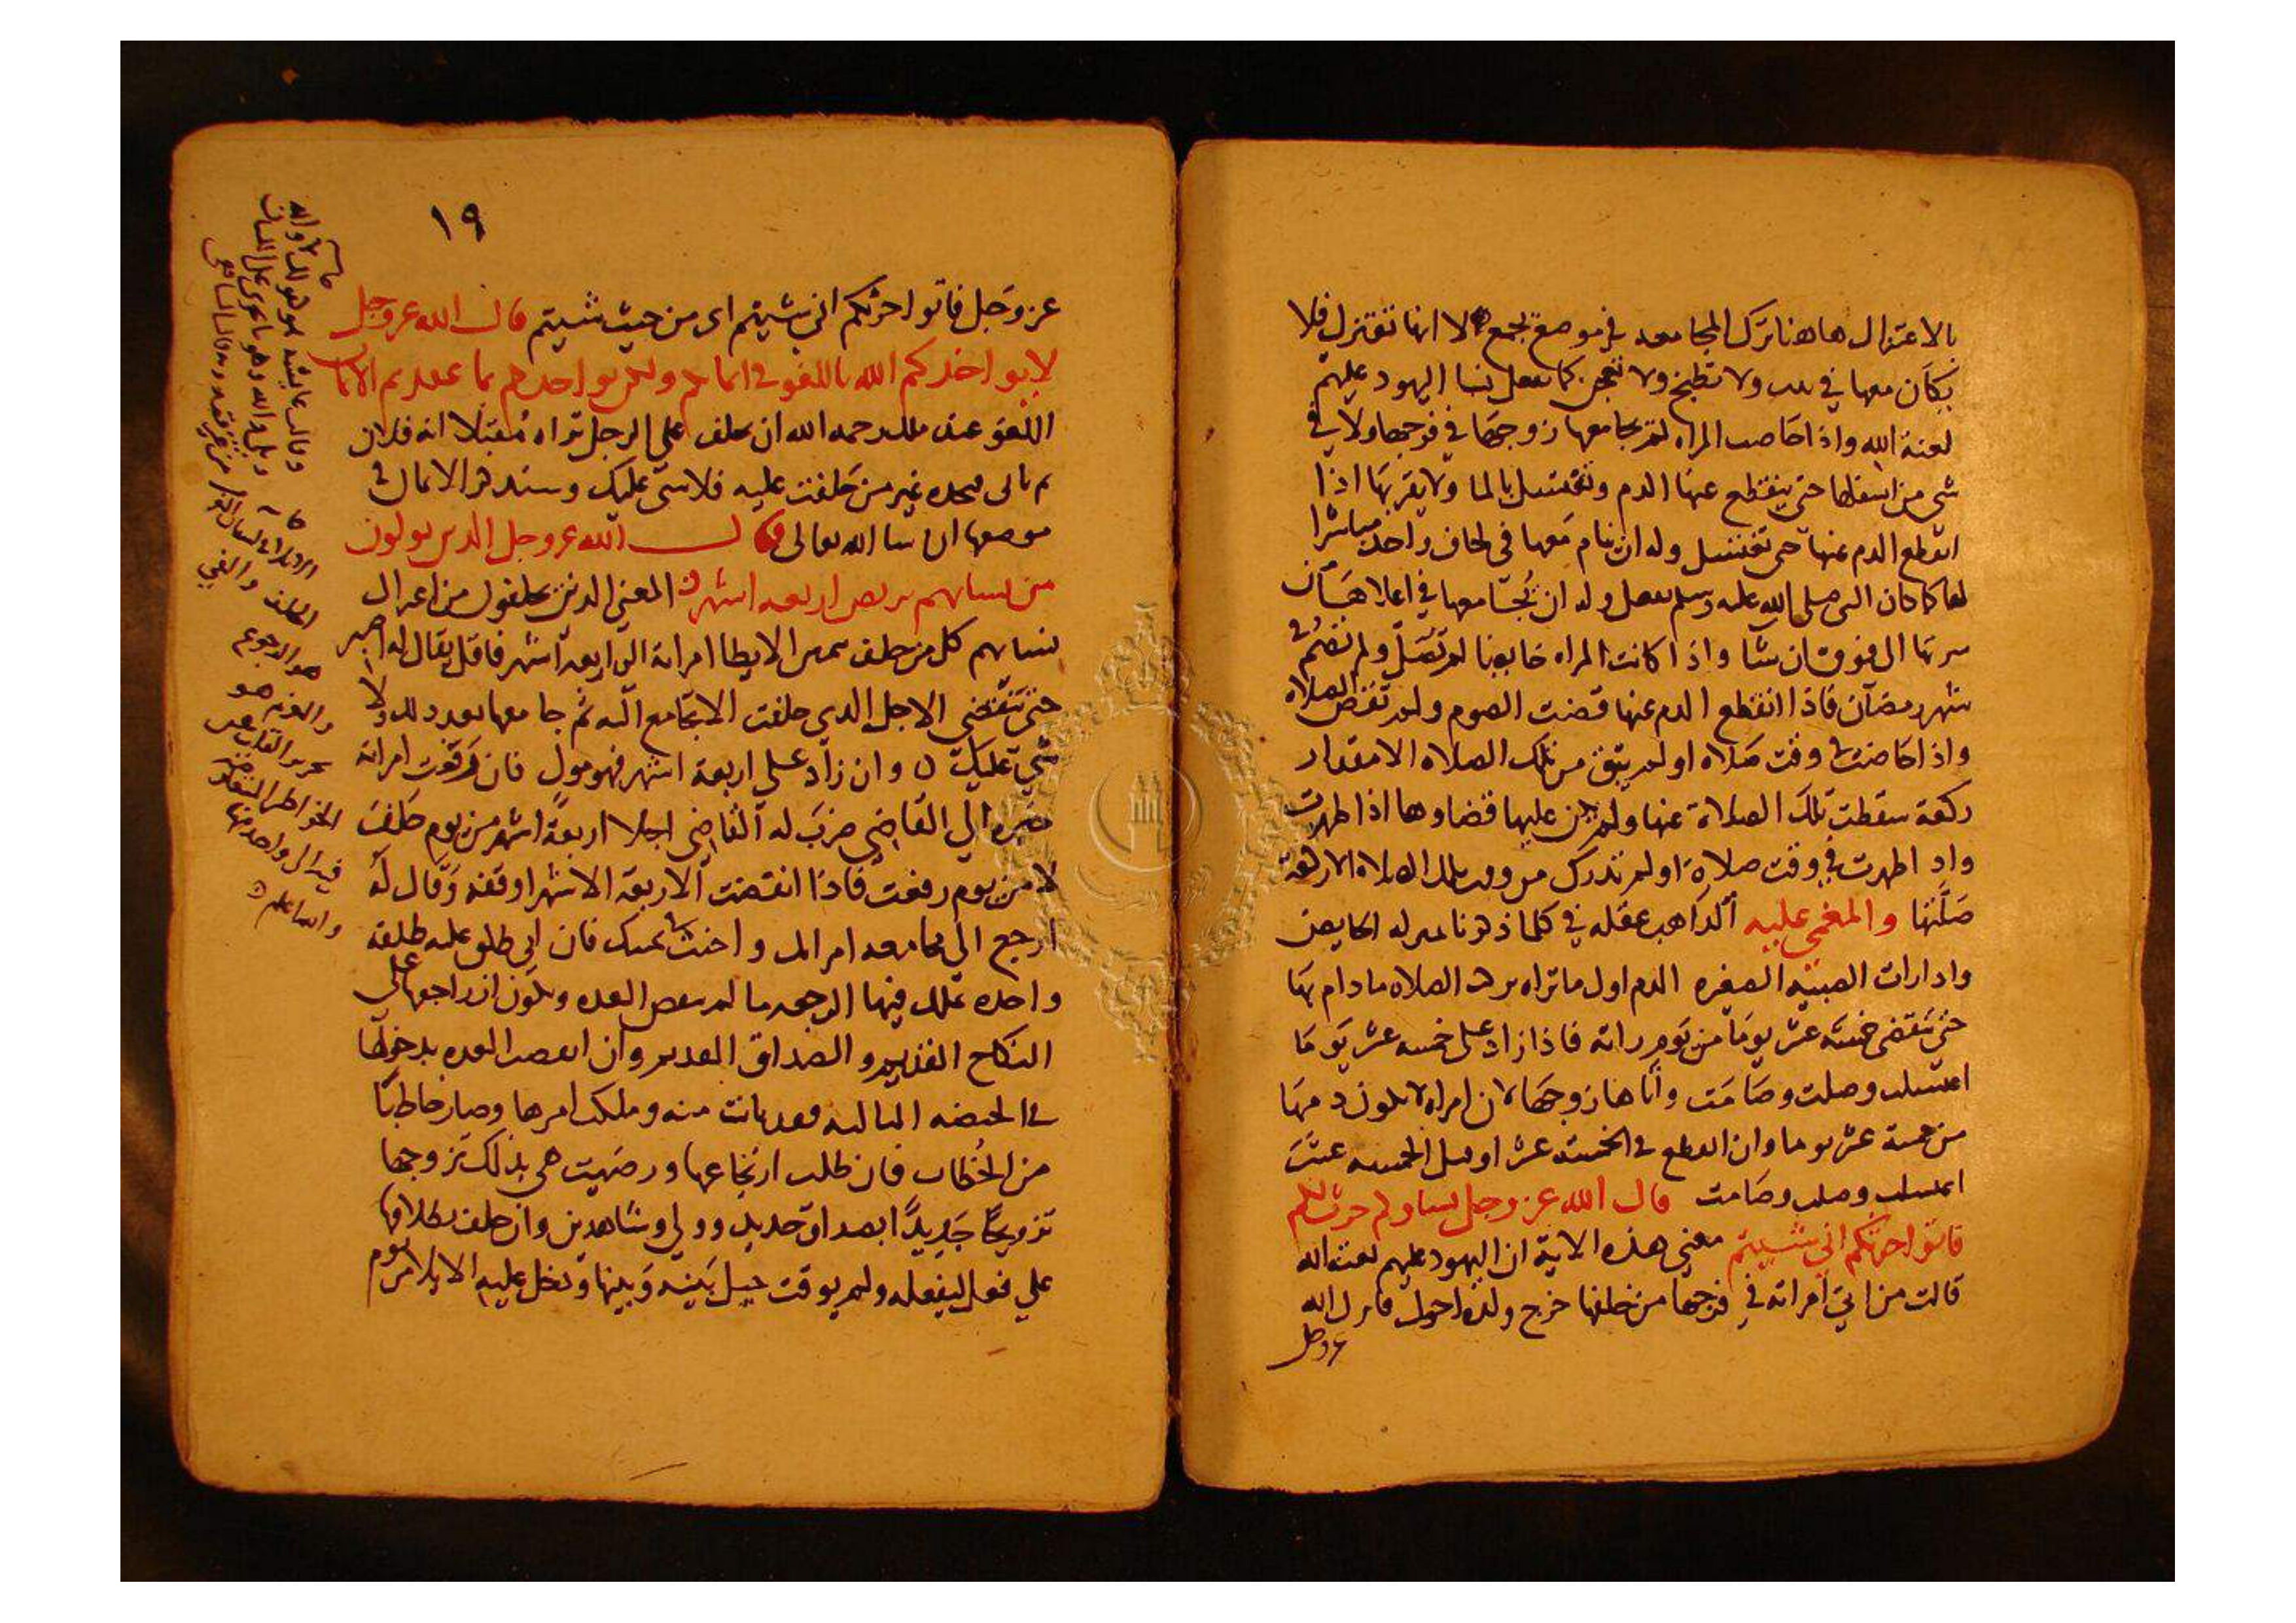 بالاعتزال هاهنا ترك المجامعه في موضع لا انها تعتزل فلا
معها في ولا تطبخ ولا تعجن كما نسا اليهود عليهم
لعنة الله واذا حاضت المراه لم يجامعها زوجها في فرجها ولا في
شي من اسفلها حتى ينقطع عنها الدم وتغتسل بالما ولا يقربها اذا
انقطع الدم عنها حتى تغتسل وله ان ينام معها في لحاف واحد مباشرا
لها كما كان النبي صلى الله عليه وسلم يفعل وله ان معها في اعلاها من
سرتها الى فوق ان شا واذا كانت المراه حايضا لم تصل ولم تصم في
شهر رمضان فاذا انقطع الدم عنها قضت الصوم ولم تقض الصلاه
واذا حاضت في وقت صلاه او لم يبق من تلك الصلاه الا مقدار
ركعة سقطت تلك الصلاة عنها ولم يكن عليها قضاوها اذا طهرت
واذا طهرت في وقت صلاة او لم تدرك من وقت تلك الصلاه الا ركعة
صلتها والمغمى عليه الذاهب عقله في كلما ذكرنا بمنزلة الحايض
واذا رات الصبيه الصغيره الدم اول ما تراه تركت الصلاه ما دام بها
حتى تنقضي خمسة عشر يوما من يوم راته فاذا زاد على خمسه عشر يوما
اغتسلت وصلت وصامت واتاها زوجها لان امراه لا يكون دمها
من خمسة عشر يوما وان انقطع في الخمسة عشر او قبل الخمسه عشر
اغتسلت وصلت وصامت قال الله عز وجل نساوكم حرث لكم
فاتوا حرثكم اني شيتم معنى هذه الاية ان اليهود عليهم لعنة الله
قالت من اتى امراته في فرجها من خلفها خرج ولده احول فانزل الله
عز وجل
١٩
عز وجل فاتوا حرثكم اني شيتم اى من حيث شيتم قال الله عز وجل
لا يواخذكم الله باللغو في ايمانكم ولكن يواخذكم بما عقدتم الايمان
اللغو عند ملك رحمه الله ان يحلف على الرجل تراه مقبلا انه فلان
ثم ياتى فتجده غير من حلفت عليه فلا شى عليك وسنذكر الايمان في
موضعها ان شا الله تعالى قال الله عز وجل الذين يولون
من نسايهم تربص اربعه اشهر المعنى الذين يحلفون من اعتزال
نسايهم كل من حلف بيمين الا يطا امراته الى اربعة اشهر فاقل يقال له اصبر
حتى تنقضى الاجل الذي حلفت الا تجامع اليه ثم جامعها بعد ذلك ولا
شي عليك وان زاد على اربعة اشهر فهو مول فان رفعت امراته
خبره الى القاضي ضرب له القاضي اجلا اربعة اشهر من يوم حلف
لا من يوم رفعت فاذا انقضت الاربعة الاشهر اوقفه وقال له
ارجع الى مجامعه امراتك واحنث في يمينك فان ابى طلق عليه طلقة
واحده يملك فيها الرجعه ما لم تنقض العده ويكون ان راجعها على
النكاح القديم والصداق القديم وان انقضت العده بدخولها
في الحيضه الثالثه فقد بانت منه وملكت امرها وصار خاطبا
من الخطاب فان طلب ارتجاعها ورضيت هي بذلك تزوجها
تزويجا جديدا بصداق جديد وولي وشاهدين وان حلف بطلاقها
على فعل ليفعله ولم يوقت حيل بينه وبينها ودخل عليه الايلا من يوم
وقالت عايشه هو قولك لا والله
وبلى والله وهو ما يجرى على اللسان
من غير عقد وبه قال الشافعي
الحلف والفي
هو الرجوع
والعزم هو
الخواطر
والله اعلم